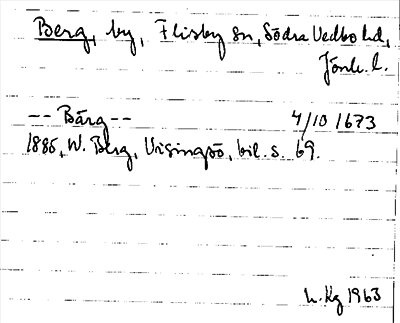 Berg, by, Flisby sn, Södra Vedbo hd,
Jönk. l.
-- Bärg -- 4/10 1673
1885, W. Berg, Visingsö, bil. s. 69.
1963